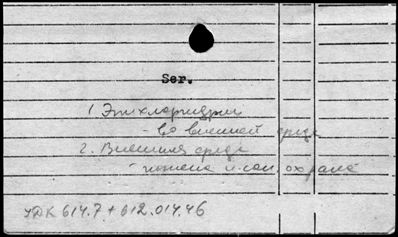 Ser.
1. Эпихлоргидрин
- во внешней среде
2. Внешняя среда
- гигиена и сан. охрана
УДК 614.7 + 612.014.46